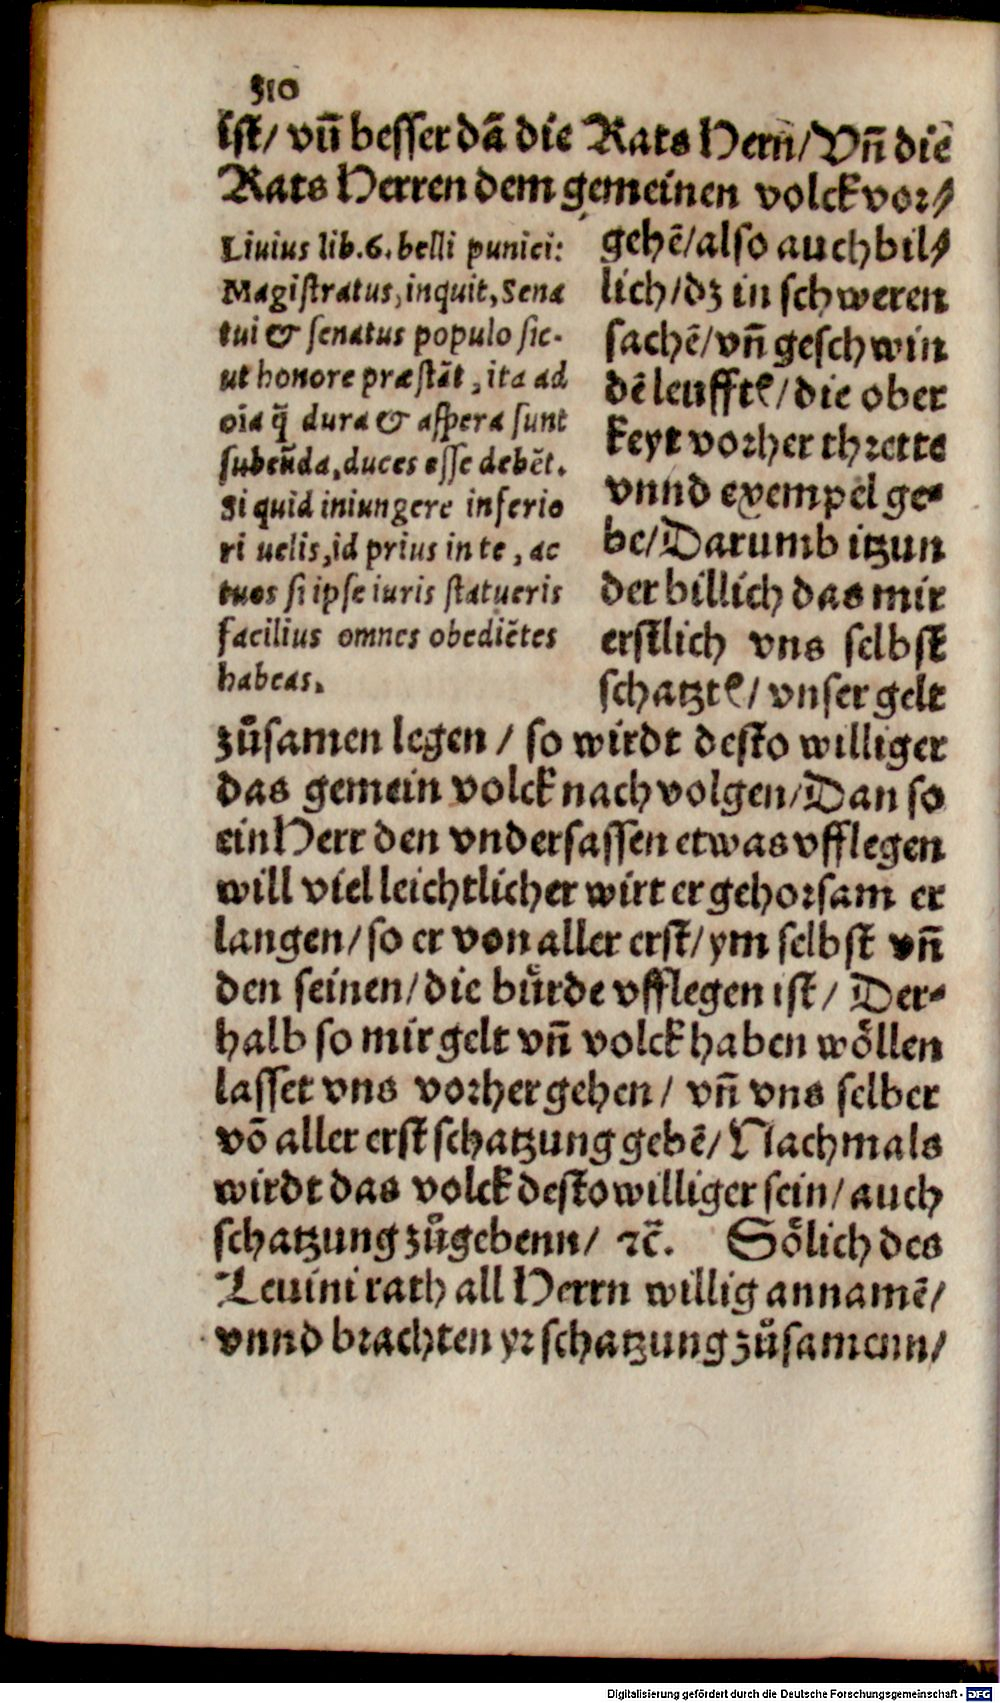 310
ist/ vñ besser dã die Rats Hern̄/ Vñ die
Rats Herren dem gemeinen volck vor⸗
Liuius lib.6. belli punici:
Magistratus, inquit, Sena
tui & senatus populo sic-
ut honore præstāt, ita ad
oīa q̄ dura & aspera sunt
subeūda, duces esse debēt.
Si quid iniungere inferio
ri uelis, id prius in te, ac
tuos si ipse iuris statueris
facilius omnes obediētes
habeas.
gehẽ/ also auch bil⸗
lich/ dz in schweren
sachẽ/ vñ geschwin
dẽ leufftẽ/ die ober
keyt vorher thrette
vnnd exempel ge⸗
be/ Darumb itzun
der billich das mir
erstlich vns selbst
schatztẽ/ vnser gelt
zůsamen legen / so wirdt desto williger
das gemein volck nach volgen/ Dan so
ein Herr den vndersassen etwas vfflegen
will viel leichtlicher wirt er gehorsam er
langen/ so er von aller erst/ ym selbst vñ
den seinen/ die bürde vfflegen ist/ Der⸗
halb so mir gelt vñ volck haben wöllen
lasset vns vorher gehen/ vñ vns selber
võ aller erst schatzung gebẽ/ Nachmals
wirdt das volck desto williger sein/ auch
schatzung zůgebenn/ ꝛc̄. Sölich des
Leuini rath all Herrn willig annamẽ/
vnnd brachten yr schatzung zůsamenn/
Digitalisierung gefördert durch die Deutsche Forschungsgemeinschaft - DFG